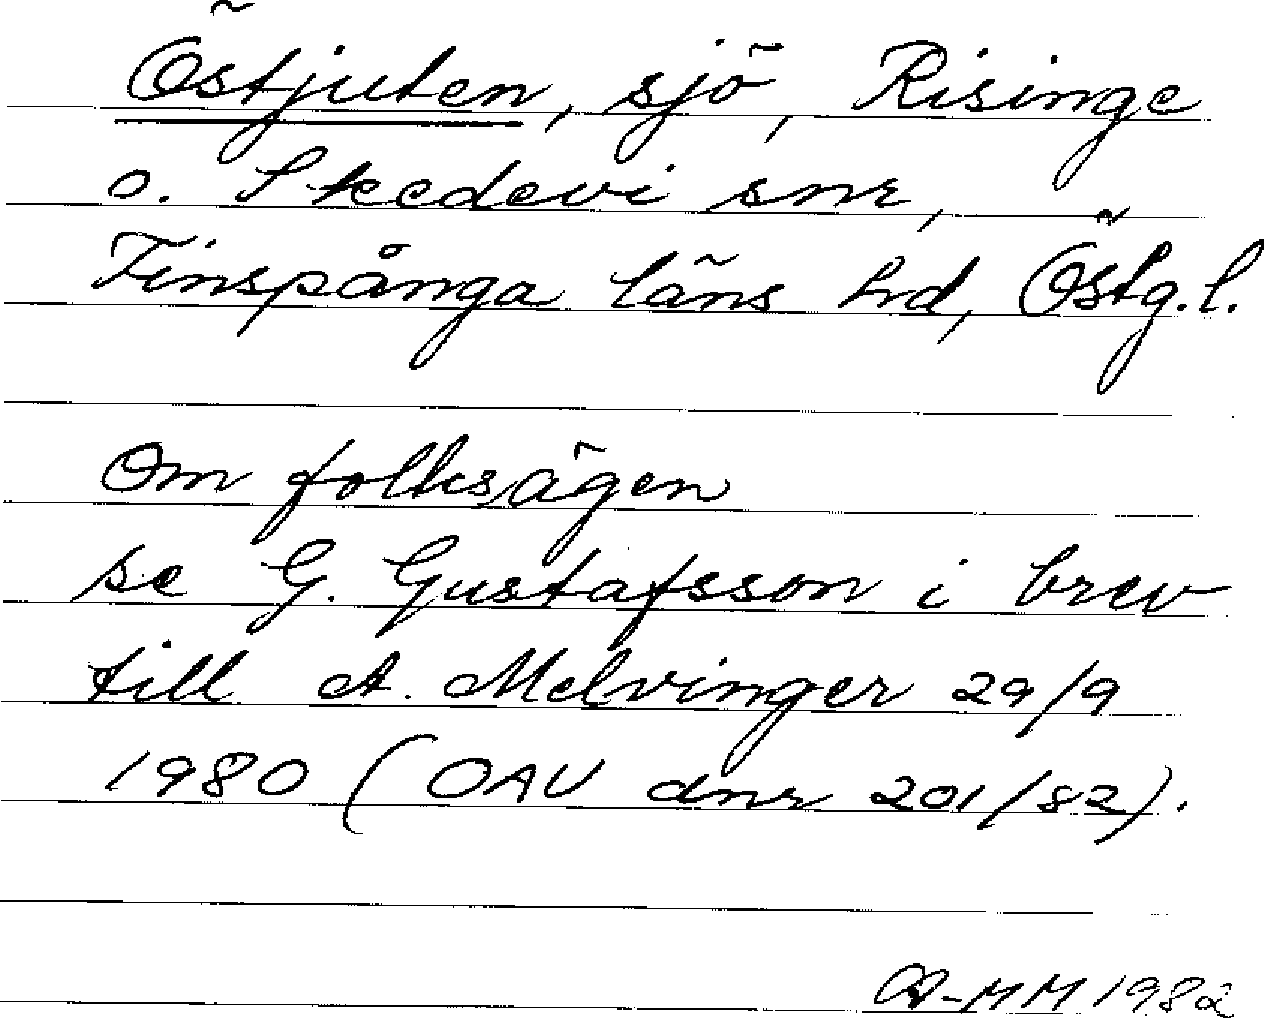 Östjuten, sjö, Risinge
o. Skedevi snr,
Finspånga läns hd, Östg.l.
Om folksägen
se G. Gustafsson i brev
till A. Melvinger 29/9
1980 (OAU dnr 201/82).
A-MM 1982